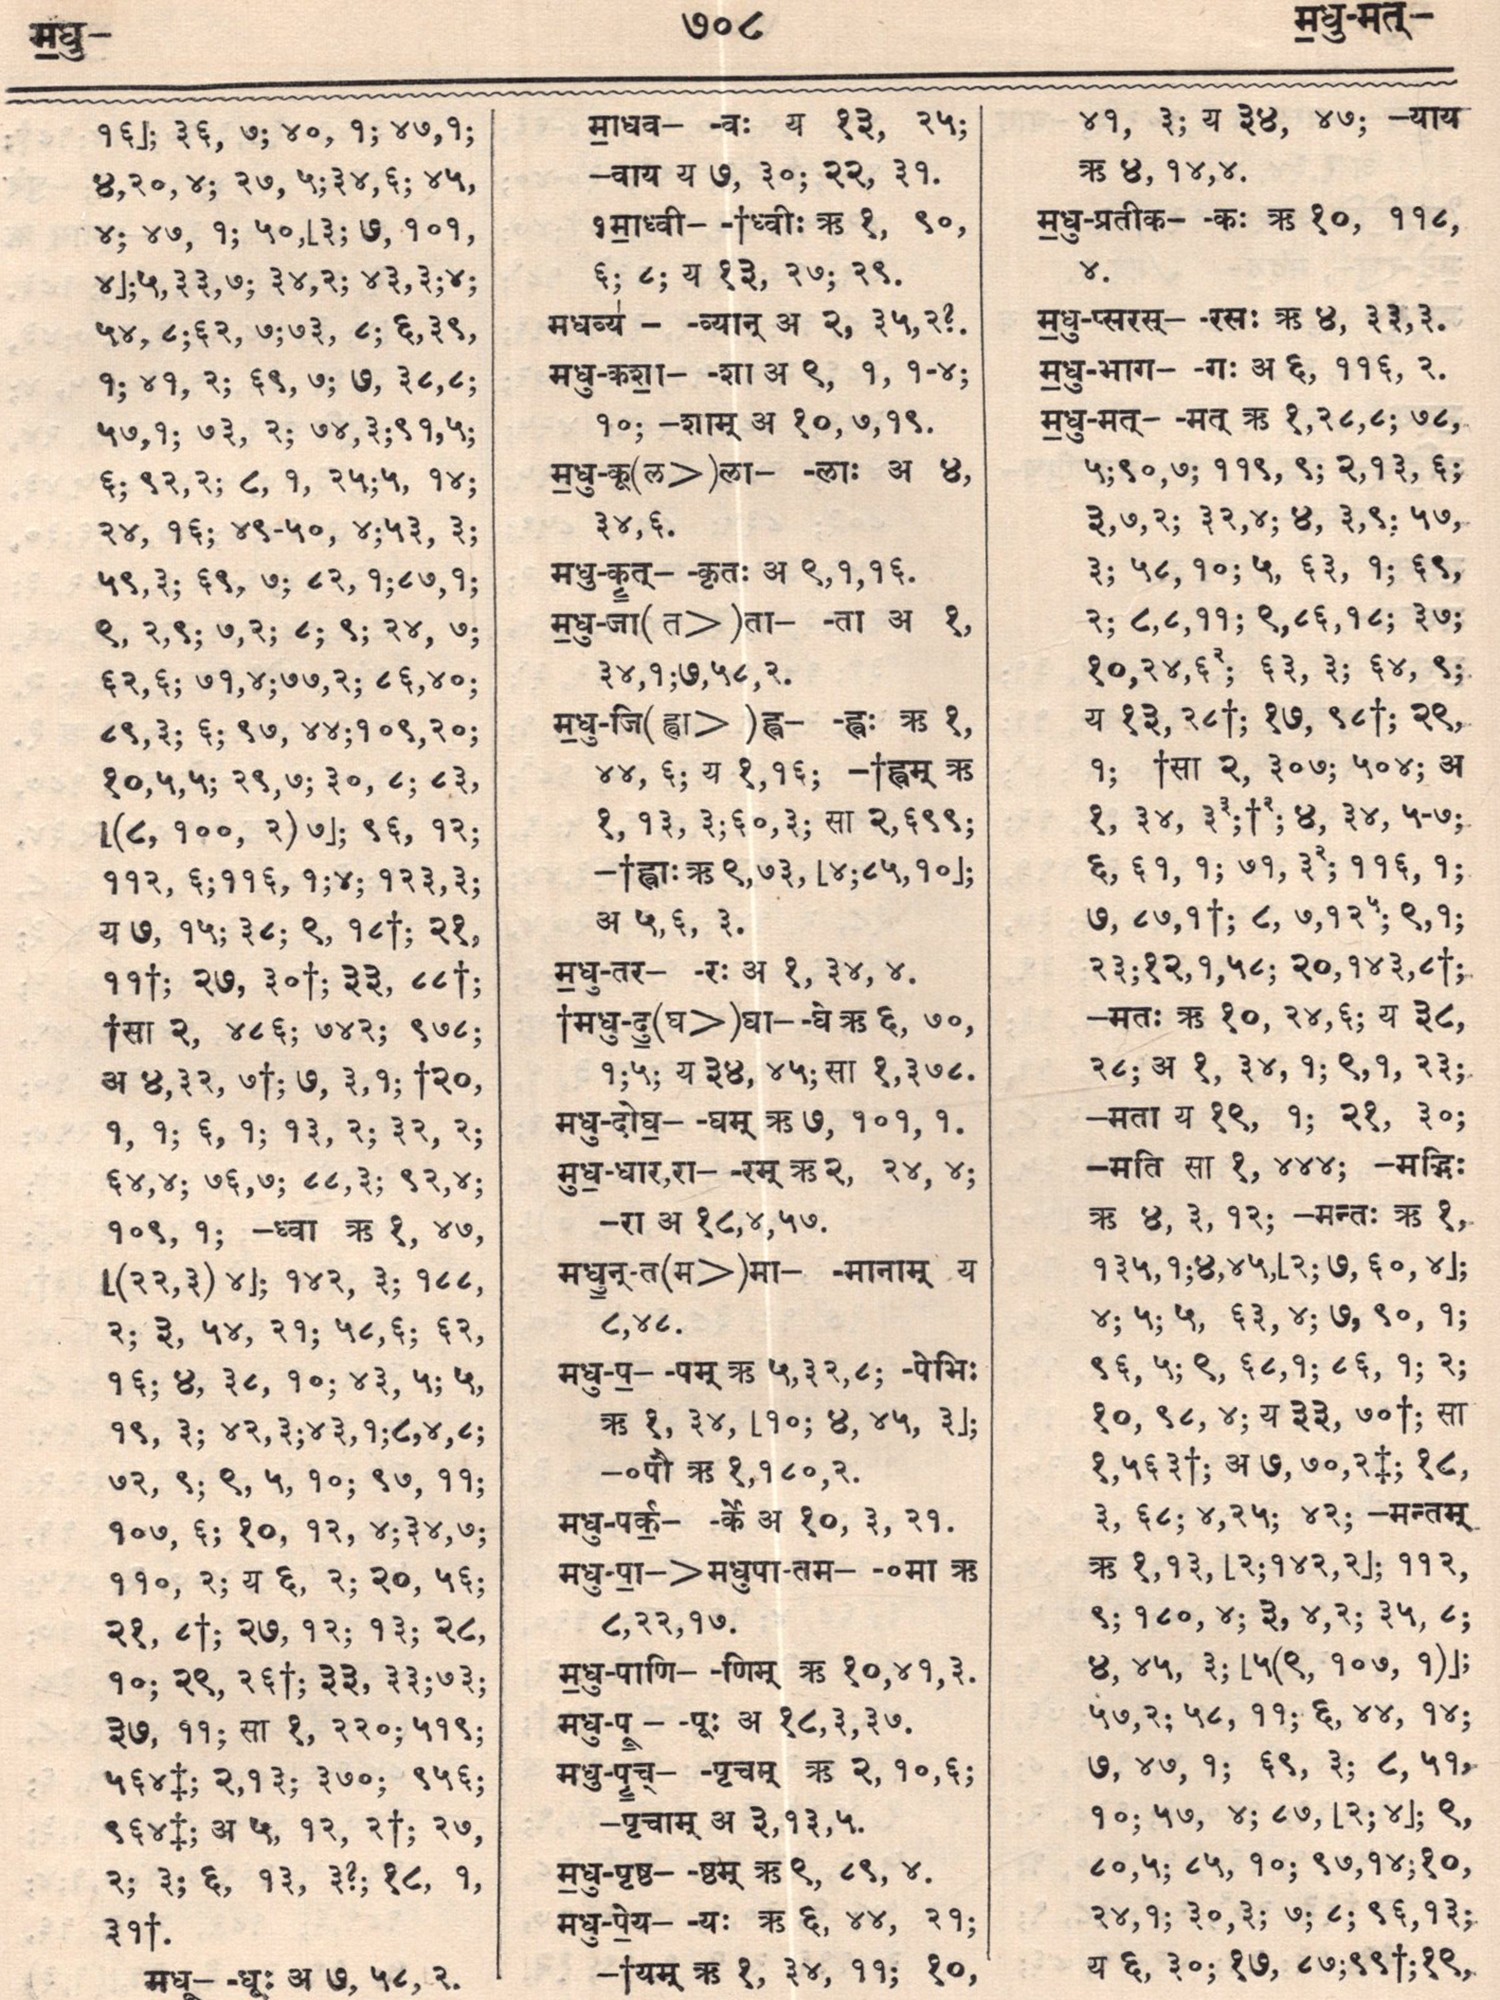 म॒धु–
७०८
म॒धु-मत्–
१६⌋; ३६, ७; ४०, १; ४७,१;
४,२०, ४; २७, ५;३४,६; ४५,
४; ४७, १; ५०,⌊३; ७, १०१,
४⌋;५,३३,७; ३४,२; ४३,३;४;
५४, ८;६२, ७;७३, ८; ६,३९,
१; ४१, २; ६९, ७; ७, ३८,८;
५७,१; ७३, २; ७४,३;९१,५;
६; ९२,२; ८, १, २५;५, १४;
२४, १६; ४९-५०, ४;५३, ३;
५९,३; ६९, ७; ८२, १;८७,१;
९, २,९; ७,२; ८; ९; २४, ७;
६२,६; ७१,४;७७,२; ८६,४०;
८९,३; ६; ९७, ४४;१०९,२०;
१०,५,५; २९,७; ३०, ८; ८३,
⌊(८, १००, २) ७⌋; ९६, १२;
११२, ६;११६, १;४; १२३,३;
य ७, १५; ३८; ९, १८†; २१,
११†; २७, ३०†; ३३, ८८†;
†सा २, ४८६; ७४२; ९७८;
अ ४,३२, ७†; ७, ३,१; †२०,
१, १; ६, १; १३, २; ३२, २;
६४,४; ७६,७; ८८,३; ९२,४;
१०९, १; –ध्वा ऋ १, ४७,
⌊(२२,३) ४⌋; १४२, ३; १८८,
२; ३, ५४, २१; ५८,६; ६२,
१६; ४, ३८, १०; ४३, ५; ५,
१९, ३; ४२,३;४३,१;८,४,८;
७२, ९; ९, ५, १०; ९७, ११;
१०७, ६; १०, १२, ४;३४,७;
११०, २; य ६, २; २०, ५६;
२१, ८†; २७, १२; १३; २८,
१०; २९, २६†; ३३, ३३;७३;
३७, ११; सा १, २२०; ५१९;
५६४‡; २,१३; ३७०; ९५६;
९६४‡; अ ५, १२, २†; २७,
२; ३; ६, १३, ३?; १८, १,
३१†.
मधू– -धूः अ ७, ५८, २.
मा॒धव– -वः य १३, २५;
–वाय य ७, ३०; २२, ३१.
१मा॒ध्वी– -†ध्वीः ऋ १, ९०,
६; ८; य १३, २७; २९.
मधव्य॑ – -व्यान् अ २, ३५,२?.
मधु-कशा॒– -शा अ ९, १, १-४;
१०; –शाम् अ १०, ७,१९.
म॒धु-कू(ल>)ला– -लाः अ ४,
३४,६.
मधु-कृ॒त्– -कृतः अ ९,१,१६.
म॒धु-जा( त> )ता– -ता अ १,
३४,१;७,५८,२.
म॒धु-जि( ह्वा> )ह्व– -ह्वः ऋ १,
४४, ६; य १,१६; –†ह्वम् ऋ
१, १३, ३;६०,३; सा २,६९९;
–†ह्वाः ऋ ९,७३, ⌊४;८५,१०⌋;
अ ५,६, ३.
म॒धु-तर– -रः अ १, ३४, ४.
†मधु-दु॒(घ>)घा– -घे ऋ ६, ७०,
१;५; य ३४, ४५; सा १,३७८.
मधु-दोघ॒– -घम् ऋ ७, १०१, १.
मुध॒-धार,रा– -रम् ऋ २, २४, ४;
–रा अ १८,४,५७.
मधु॒न्-त(म>)मा– -मानाम् य
८,४८.
मधु-प॒– -पम् ऋ ५,३२,८; -पेभिः
ऋ १, ३४, ⌊१०; ४, ४५, ३⌋;
–०पौ ऋ १,१८०,२.
मधु-पर्क॒– -र्के अ १०, ३, २१.
मधु-पा॒–>मधुपा-तम– -०मा ऋ
८,२२,१७.
म॒धु-पाणि– -णिम् ऋ १०,४१,३.
मधु-पू॒ – -पूः अ १८,३,३७.
मधु-पृ॒च्– -पृचम् ऋ २, १०,६;
–पृचाम् अ ३,१३,५.
म॒धु-पृष्ठ– -ष्ठम् ऋ ९, ८९, ४.
मधु-पे॒य– -यः ऋ ६, ४४, २१;
–†यम् ऋ १, ३४, ११; १०,
४१, ३; य ३४, ४७; –याय
ऋ ४, १४,४.
म॒धु-प्रतीक– -कः ऋ १०, ११८,
४.
म॒धु-प्सरस्– -रसः ऋ ४, ३३,३.
म॒धु-भाग– -गः अ ६, ११६, २.
म॒धु-मत्– -मत् ऋ १,२८,८; ७८,
५;९०,७; ११९, ९; २,१३, ६;
३,७,२; ३२,४; ४, ३,९; ५७,
३; ५८, १०; ५, ६३, १; ६९,
२; ८,८,११; ९,८६,१८; ३७;
१०,२४,६²; ६३, ३; ६४, ९;
य १३, २८†; १७, ९८†; २९,
१; †सा २, ३०७; ५०४; अ
१, ३४, ३³;†²; ४, ३४, ५-७;
६, ६१, १; ७१, ३²; ११६, १;
७, ८७,१†; ८, ७,१२⁵; ९,१;
२३;१२,१,५८; २०,१४३,८†;
–मतः ऋ १०, २४,६; य ३८,
२८; अ १, ३४, १; ९,१, २३;
–मता य १९, १; २१, ३०;
–मति सा १, ४४४; –मद्भिः
ऋ ४, ३, १२; –मन्तः ऋ १,
१३५,१;४,४५,⌊२; ७,६०, ४⌋;
४; ५; ५, ६३, ४; ७, ९०, १;
९६, ५; ९, ६८,१; ८६, १; २;
१०, ९८, ४; य ३३, ७०†; सा
१,५६३†; अ ७, ७०,२‡; १८,
३, ६८; ४,२५; ४२; –मन्तम्
ऋ १,१३, ⌊२;१४२,२⌋; ११२,
९; १८०, ४; ३, ४,२; ३५, ८;
४, ४५, ३; ⌊५(९, १०७, १)⌋;
५७,२; ५८, ११; ६, ४४, १४;
७, ४७, १; ६९, ३; ८, ५१,
१०; ५७, ४; ८७, ⌊२; ४⌋; ९,
८०,५; ८५, १०; ९७,१४;१०,
२४,१; ३०,३; ७; ८; ९६,१३;
य ६, ३०; १७, ८७;९९†;१९,